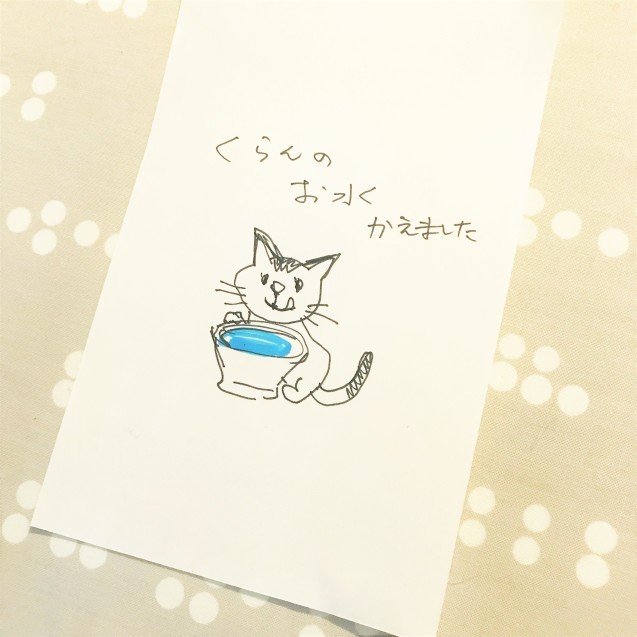 くらんの
お水く
かえました